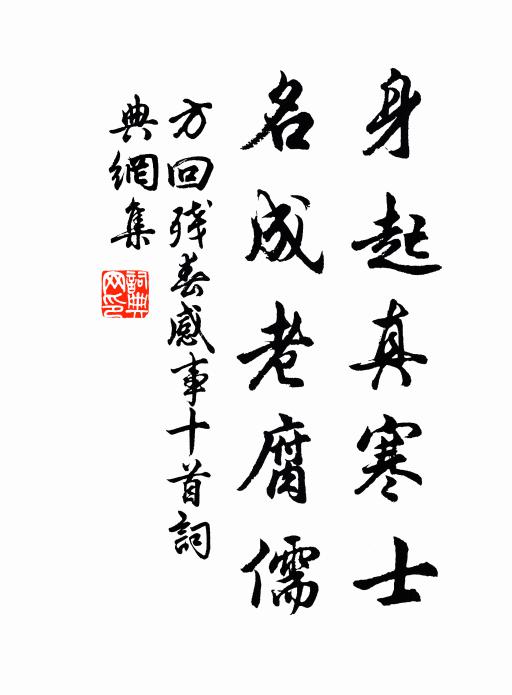 身起真寒士
名成老腐儒
方回残春感事十首詞
典網集
詞典網印